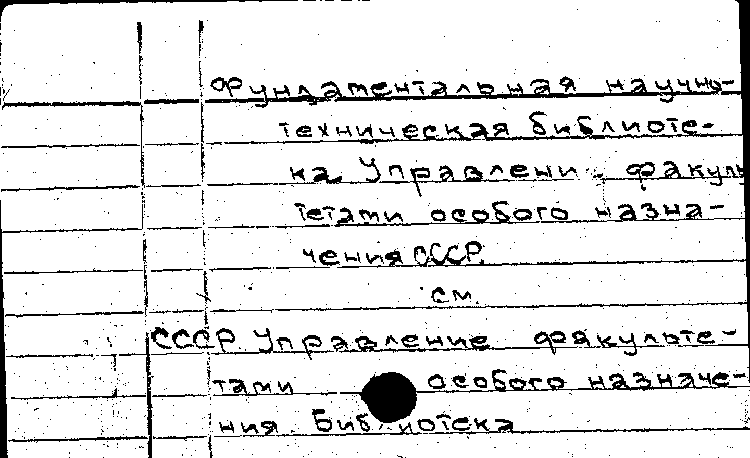 Фундаментальная научно-
техническая библиоте-
ка Управлени факуль
тетами особого назна-
чения СССР.
см.
СССР. Управление факульте-
тами особого назначе-
ния. Библиотека